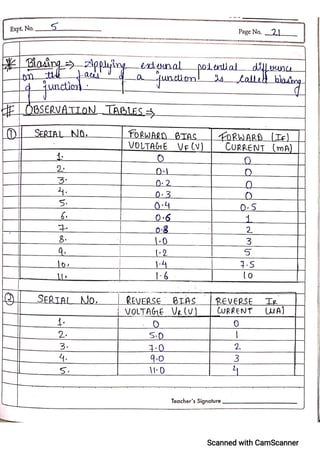 Expt. No. 5
Page No. 21
* Biasing ⇒ Applying external potential difference
on the faces of a junction is called biasing
of junction.
# OBSERVATION TABLES ⇒
① SERIAL NO. FORWARD BIAS VOLTAGE VF (V) FORWARD (IF) CURRENT (mA)
1. 0 0
2. 0.1 0
3. 0.2 0
4. 0.3 0
5. 0.4 0.5
6. 0.6 1
7. 0.8 2
8. 1.0 3
9. 1.2 5
10. 1.4 7.5
11. 1.6 10
② SERIAL NO. REVERSE BIAS VOLTAGE VR (V) REVERSE IR CURRENT (μA)
1. 0 0
2. 5.0 1
3. 7.0 2
4. 9.0 3
5. 11.0 4
Teacher's Signature
Scanned with CamScanner